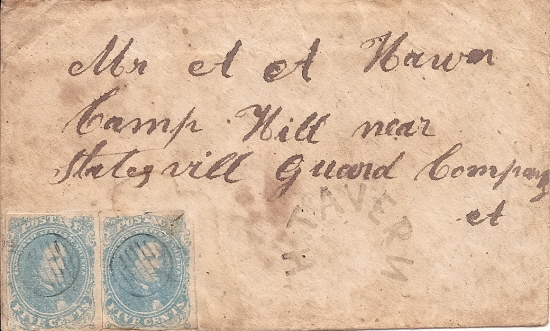 Mr A A Hawn
Camp Hill near
Statesvill Guard Company
A
TAVERN
POSTA
POSTA
FIVE CENTS
FIVE CENTS